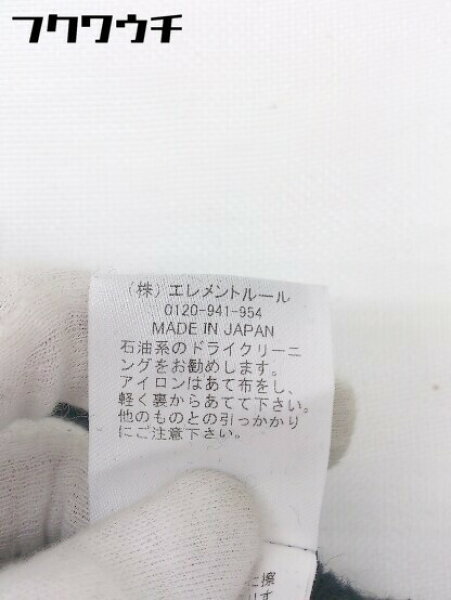 フクワウチ
(株)エレメントルール
0120-941-954
MADE IN JAPAN
石油系のドライクリーニ
ングをお勧めします。
アイロンはあて布をし、
軽く裏からあてて下さい。
他のものとの引っかかり
にご注意下さい。
に擦